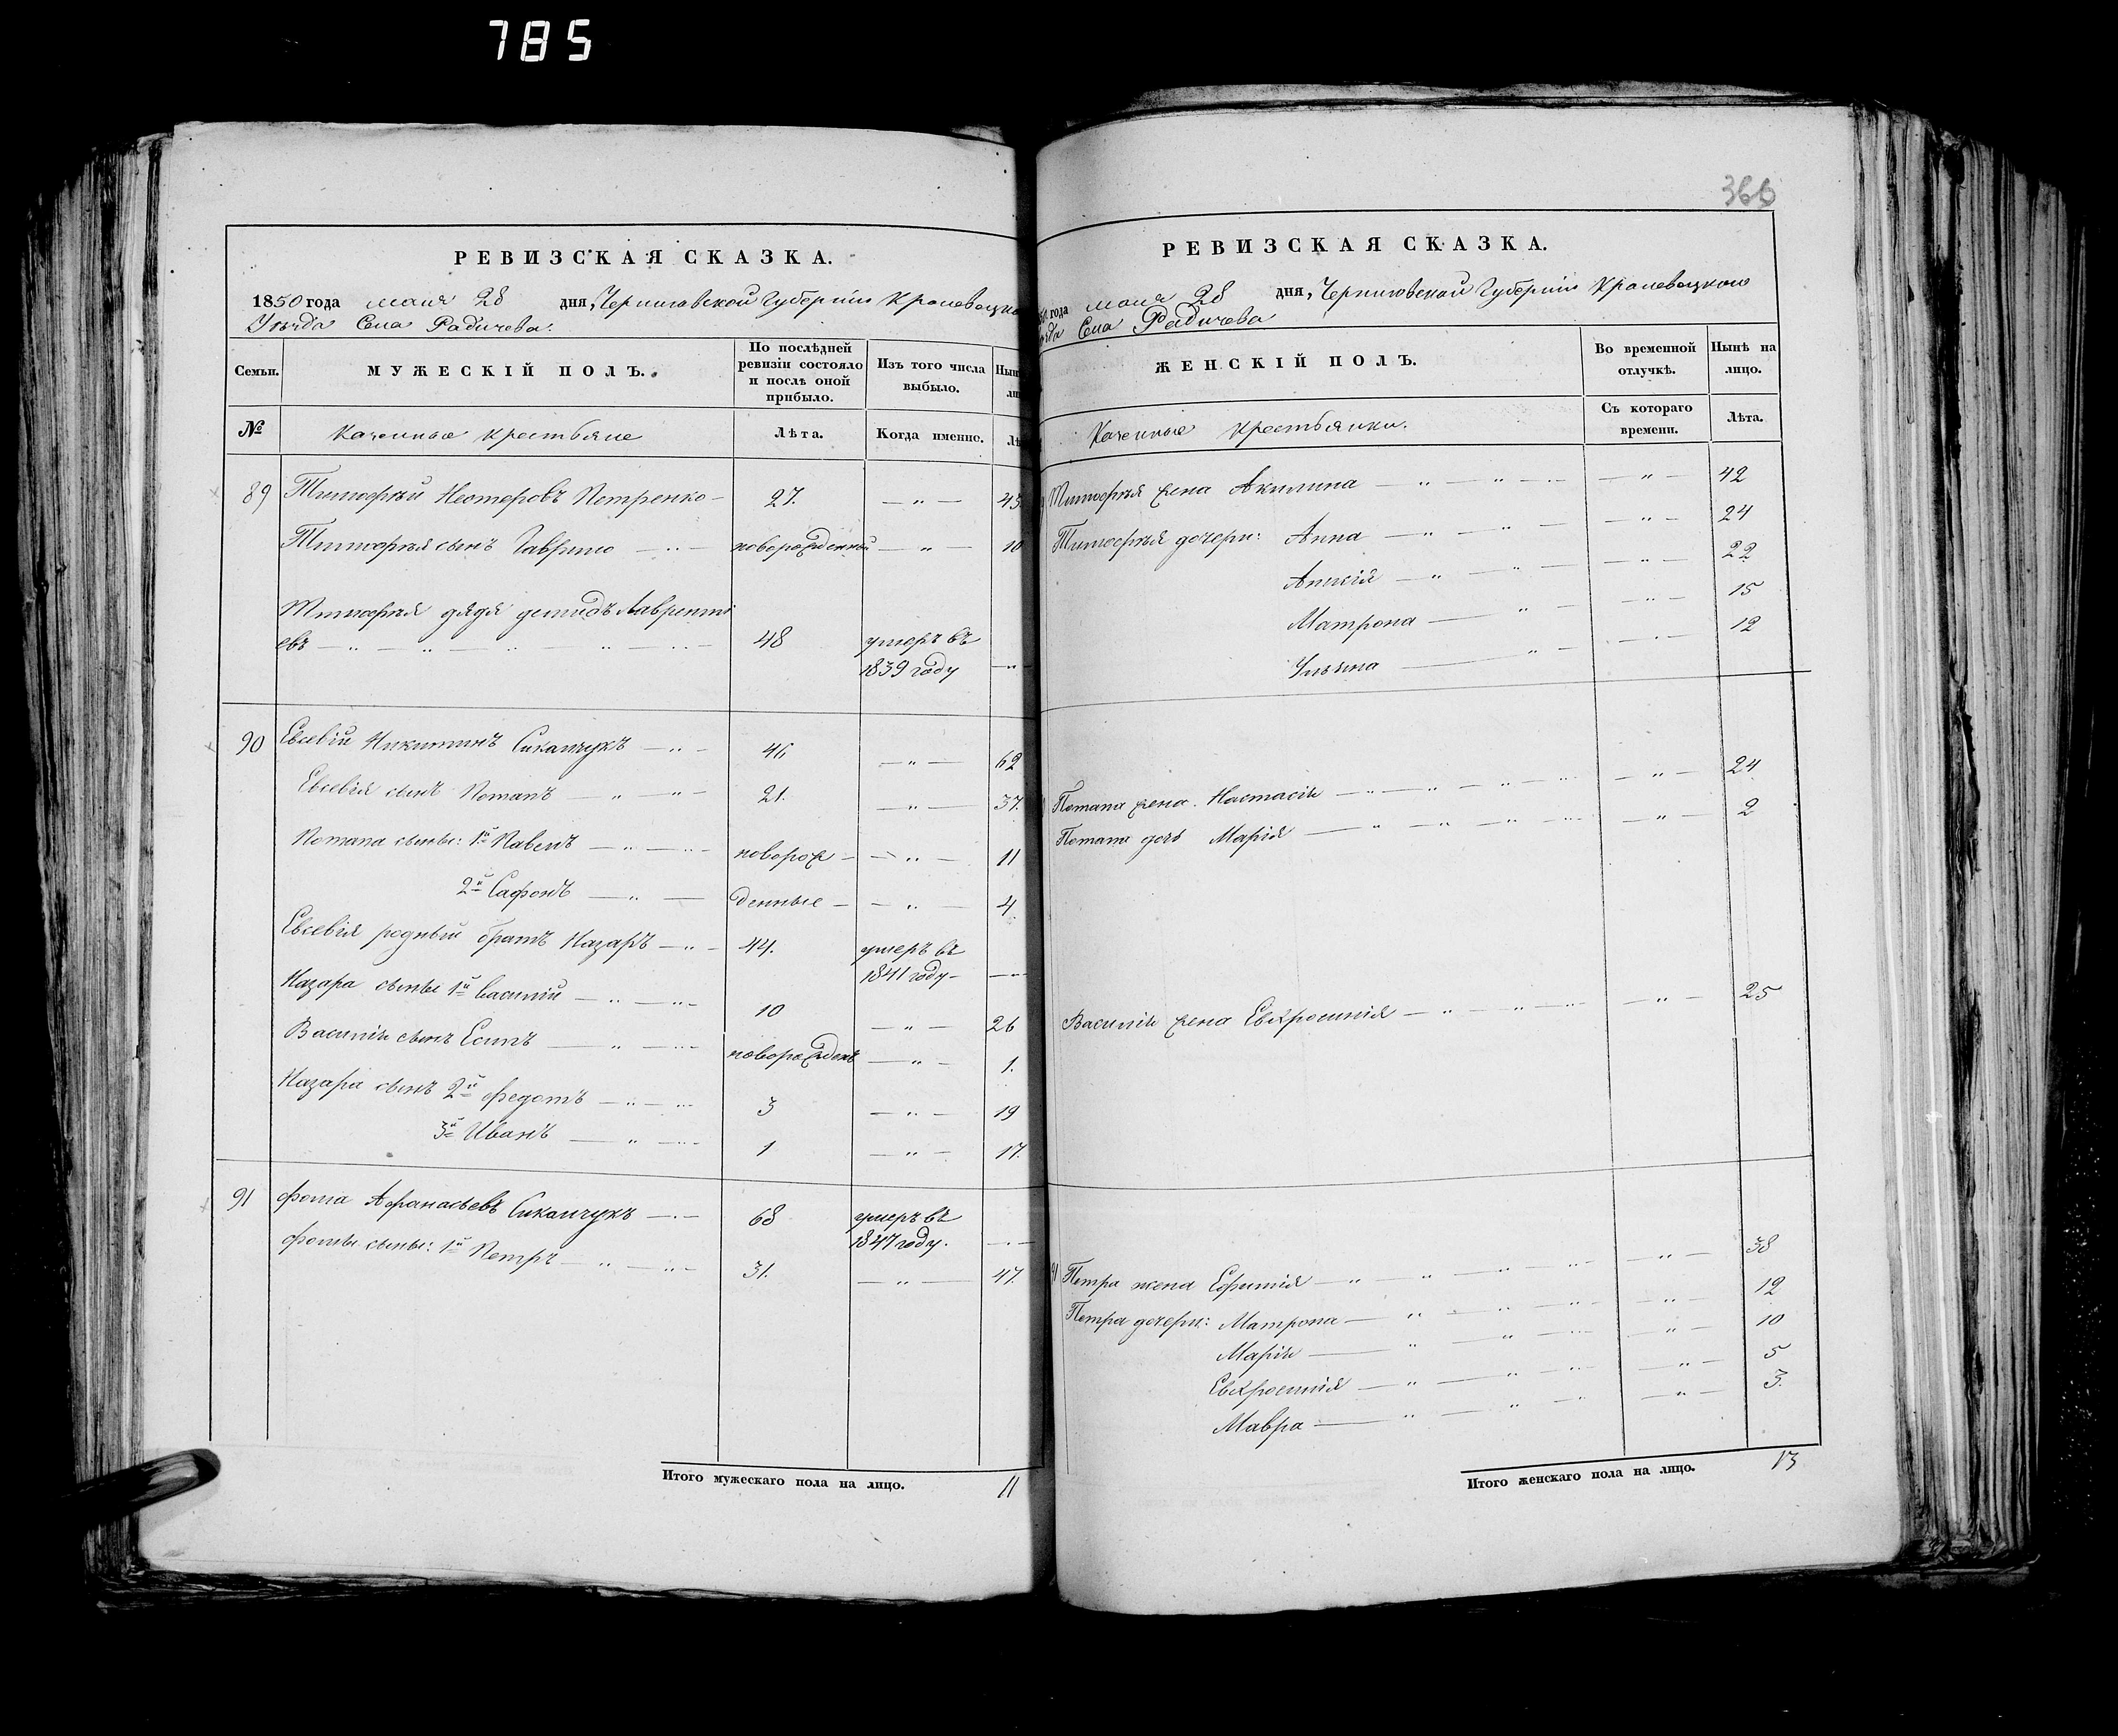 785
366
РЕВИЗСКАЯ СКАЗКА.
1850 года маия 28 дня, Черниговской Губернии Кролевецко
Уезда Села Радичева.
Семьи. МУЖЕСКІЙ ПОЛЪ. По послѣдней ревизіи состояло и послѣ оной прибыло. Изъ того числа выбыло. Нын ли
№ Казенные крестьяне Лѣта. Когда именно. Лѣ
89 Тимофѣй Нестеровъ Петренко 27. — „ — 43.
Тимофѣя сынъ Гаврило новорожденный — „ — 10
Тимофѣя дядя Демидъ Лавренті
евъ 48 умеръ въ
1839 году — „
90 Евсевій Никитинъ Сиканчукъ 46 — „ — 62
Евсевія сынъ Потапъ 21. — „ — 37.
Потапа сыны: 1й Павелъ новорож — „ — 11
2й Сафонъ денные — „ — 4.
Евсевія родный братъ Назаръ 44. умеръ въ
1841 году
Назара сыны 1й Василий 10 — „ — 26
Василія сынъ Есипъ новорожденъ — „ — 1.
Назара сынъ 2й Федотъ 3 — „ — 19
3й Иванъ 1 — „ — 17.
91 Фома Афанасьевъ Сиканчукъ 68 умеръ въ
1847 году.
Фомы сыны: 1й Петръ 31. — „ — 47.
Итого мужескаго пола на лицо. 11
РЕВИЗСКАЯ СКАЗКА.
50 года маия 28 дня, Черниговской Губерніи Кролевецкого
езда Села Радичева
ЖЕНСКІЙ ПОЛЪ. Во временной отлучкѣ. Нынѣ на лицо.
Казенные крестьянки. Съ котораго времени. Лѣта.
Тимофѣя жена Акилина — „ — 42
Тимофѣя дочери: Анна — „ — 24
22
Матрона — „ — 15
Ульяна — „ — 12
Потапа жена Настасія — „ — 24
Потапа дочь Марія — „ — 2
Василія жена Евфросинія — „ — 25
91 Петра жена Ефимія — „ — 38
Петра дочери: Матрона — „ — 12
Марія — „ — 10
Евфросинія — „ — 5
Мавра — „ — 3.
Итого женскаго пола на лицо. 13